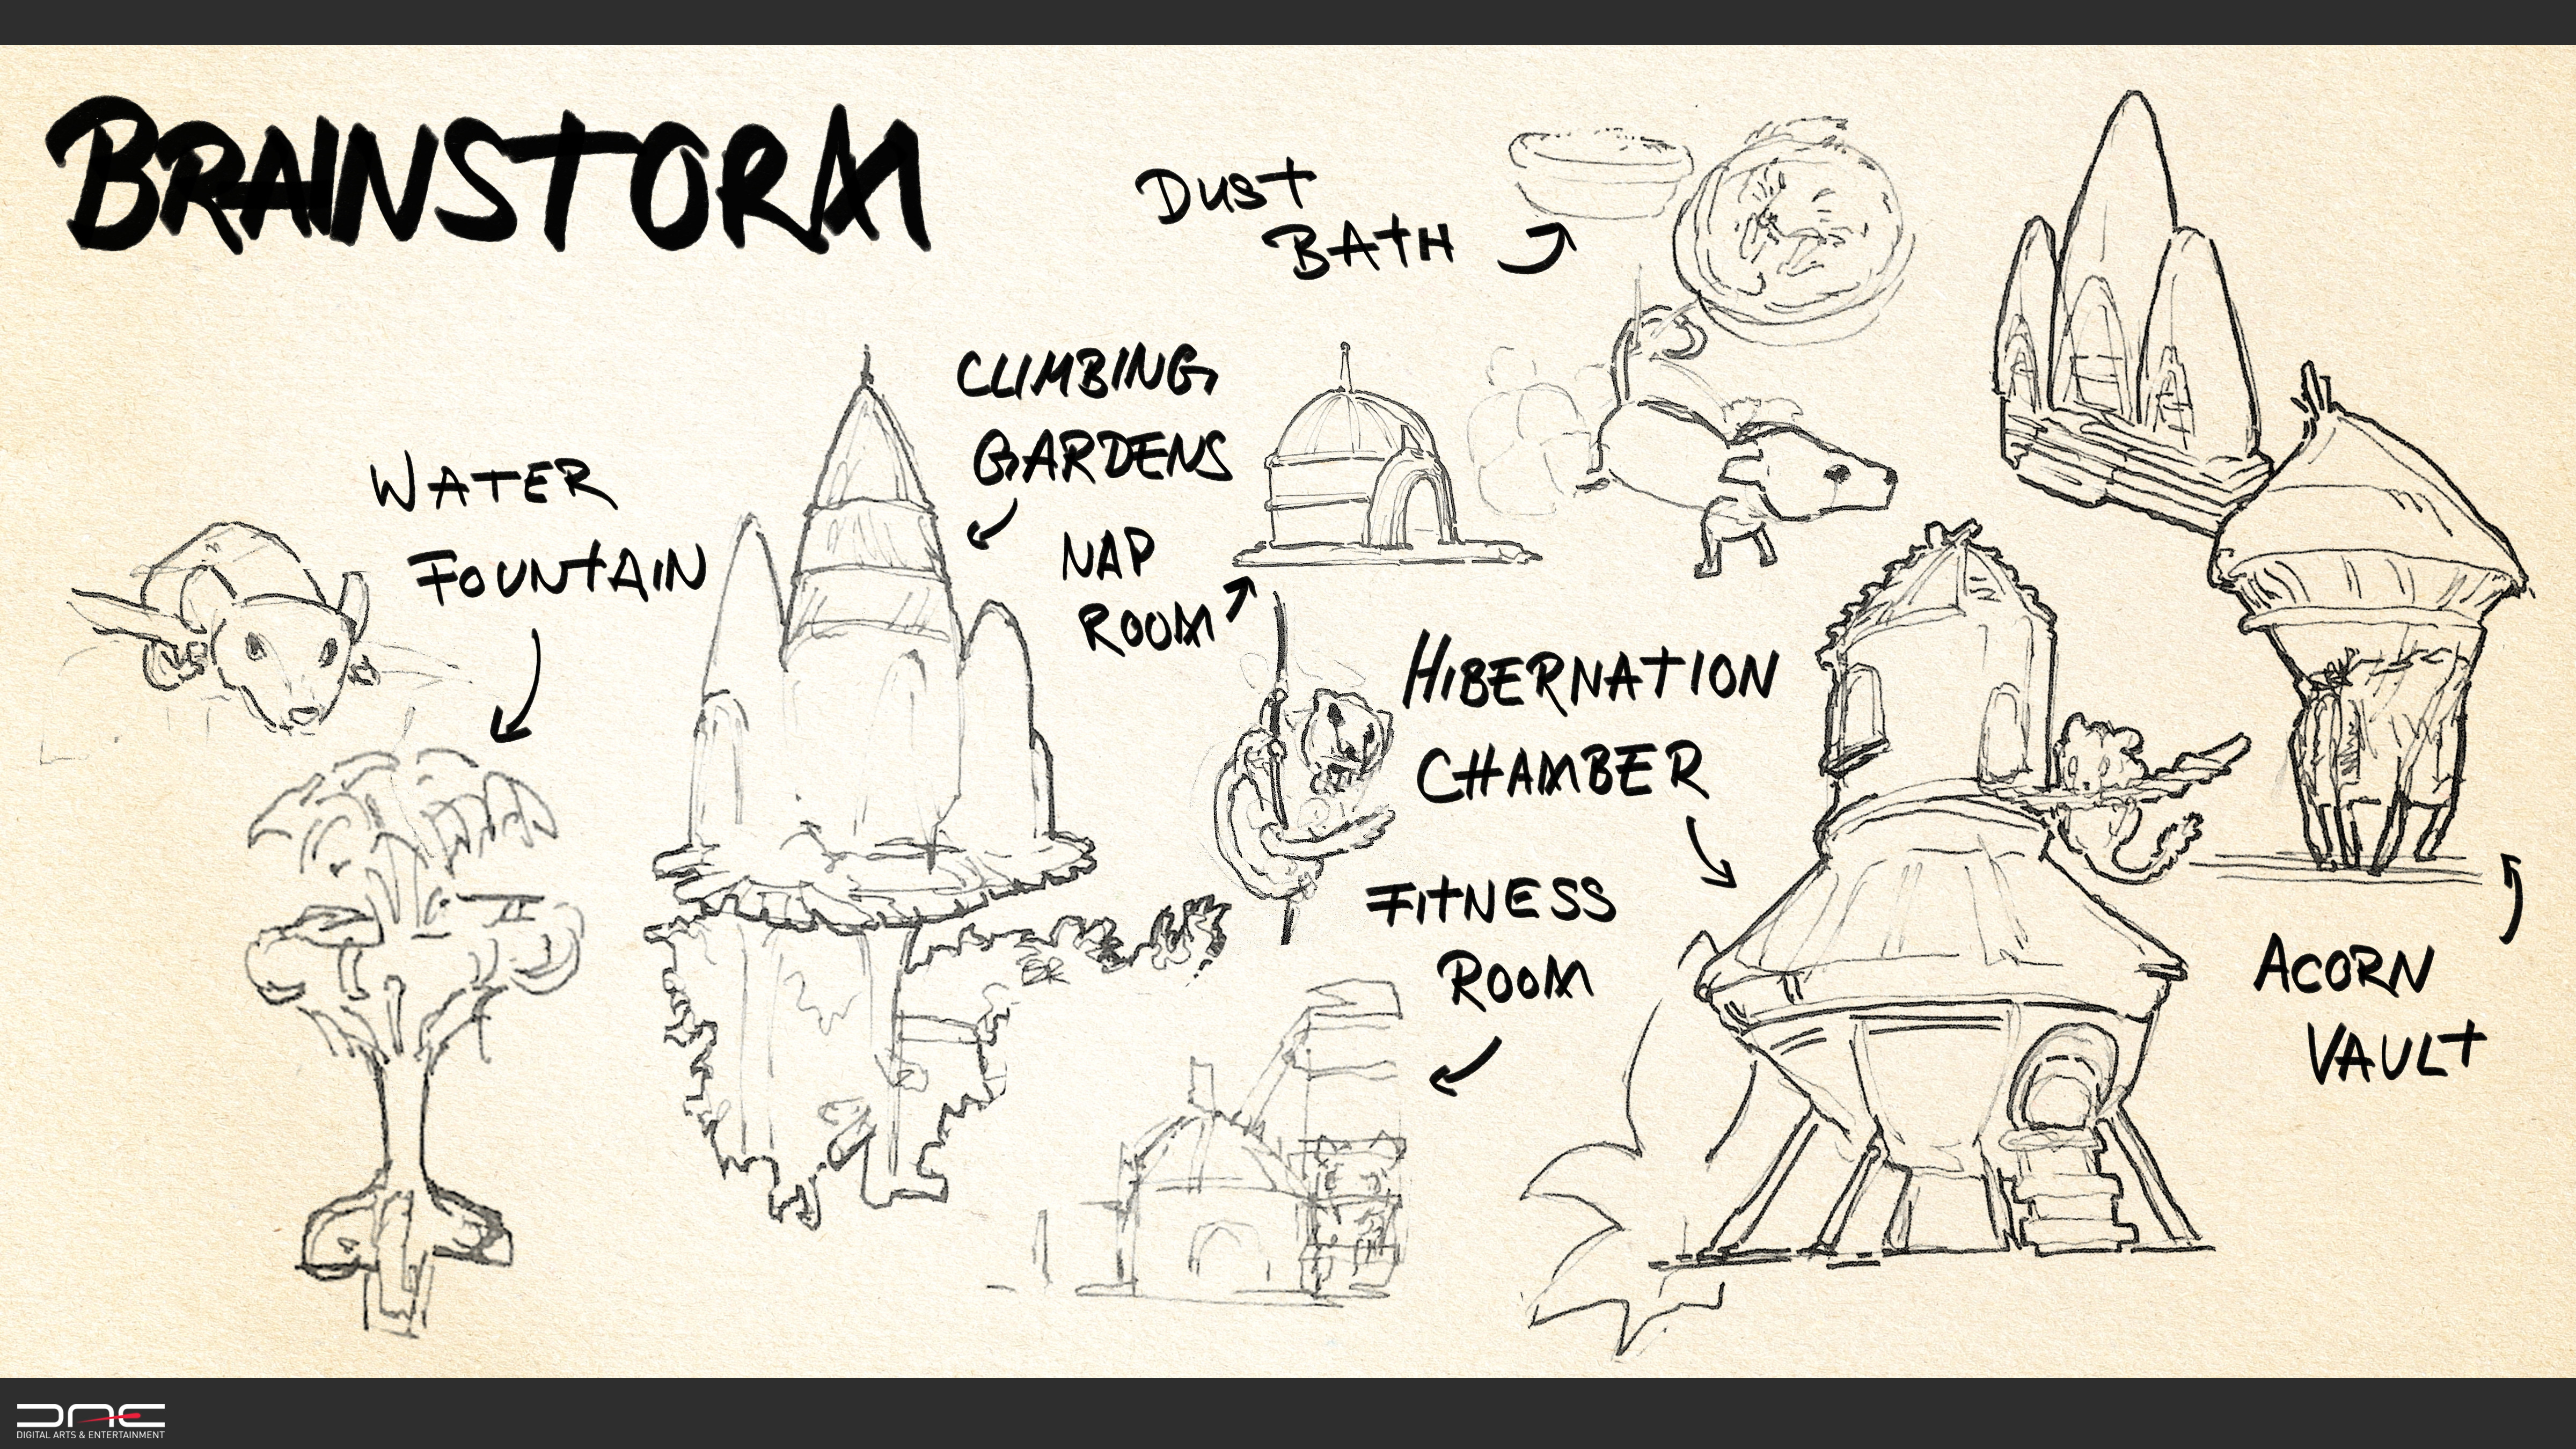 BRAINSTORM
DUST
BATH
CLIMBING
GARDENS
WATER
FOUNTAIN
NAP
ROOM
HIBERNATION
CHAMBER
FITNESS
ROOM
ACORN
VAULT
DAE
DIGITAL ARTS & ENTERTAINMENT